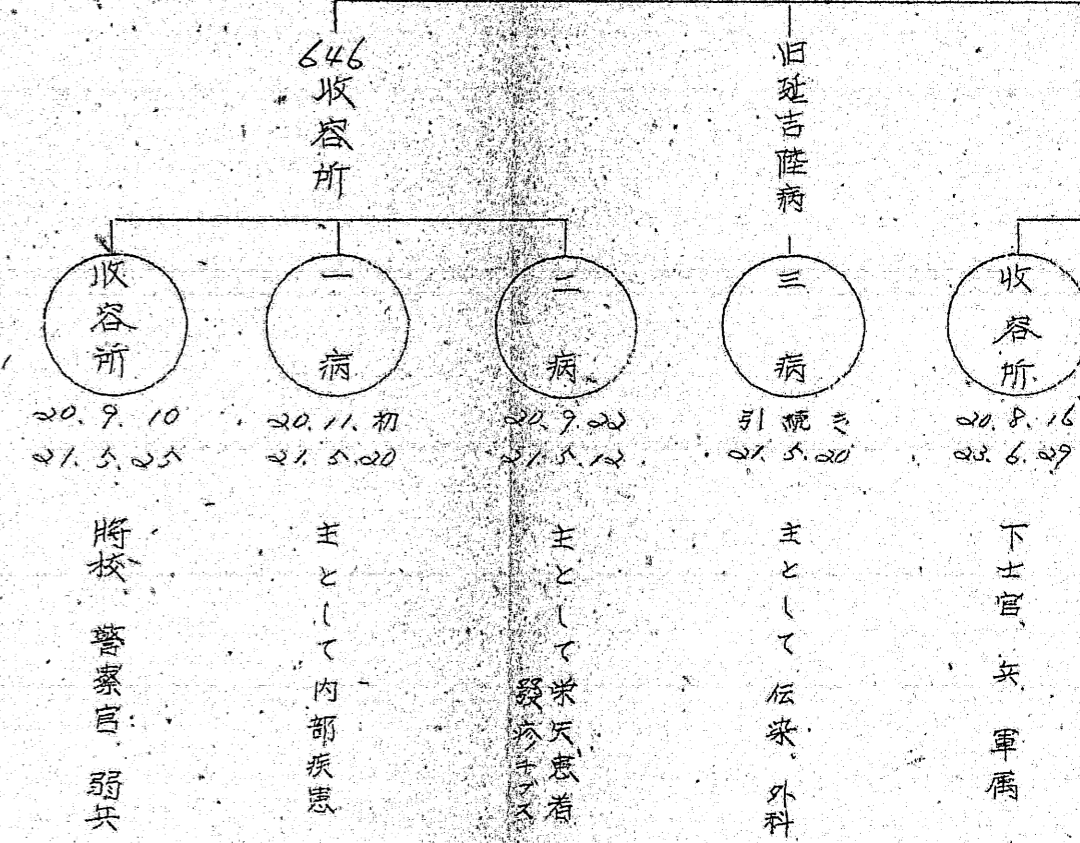 646
收容所
旧延吉陸病
收容所
20.9.10
21.5.25
将校 警察官 弱兵
一病
20.11.初
21.5.20
主として内部疾患
二病
20.9.22
21.5.12
主として栄失患者
發疹チブス
三病
引続き
21.5.20
主として伝染、外科
收容所
20.8.16
23.6.29
下士官、兵 軍属